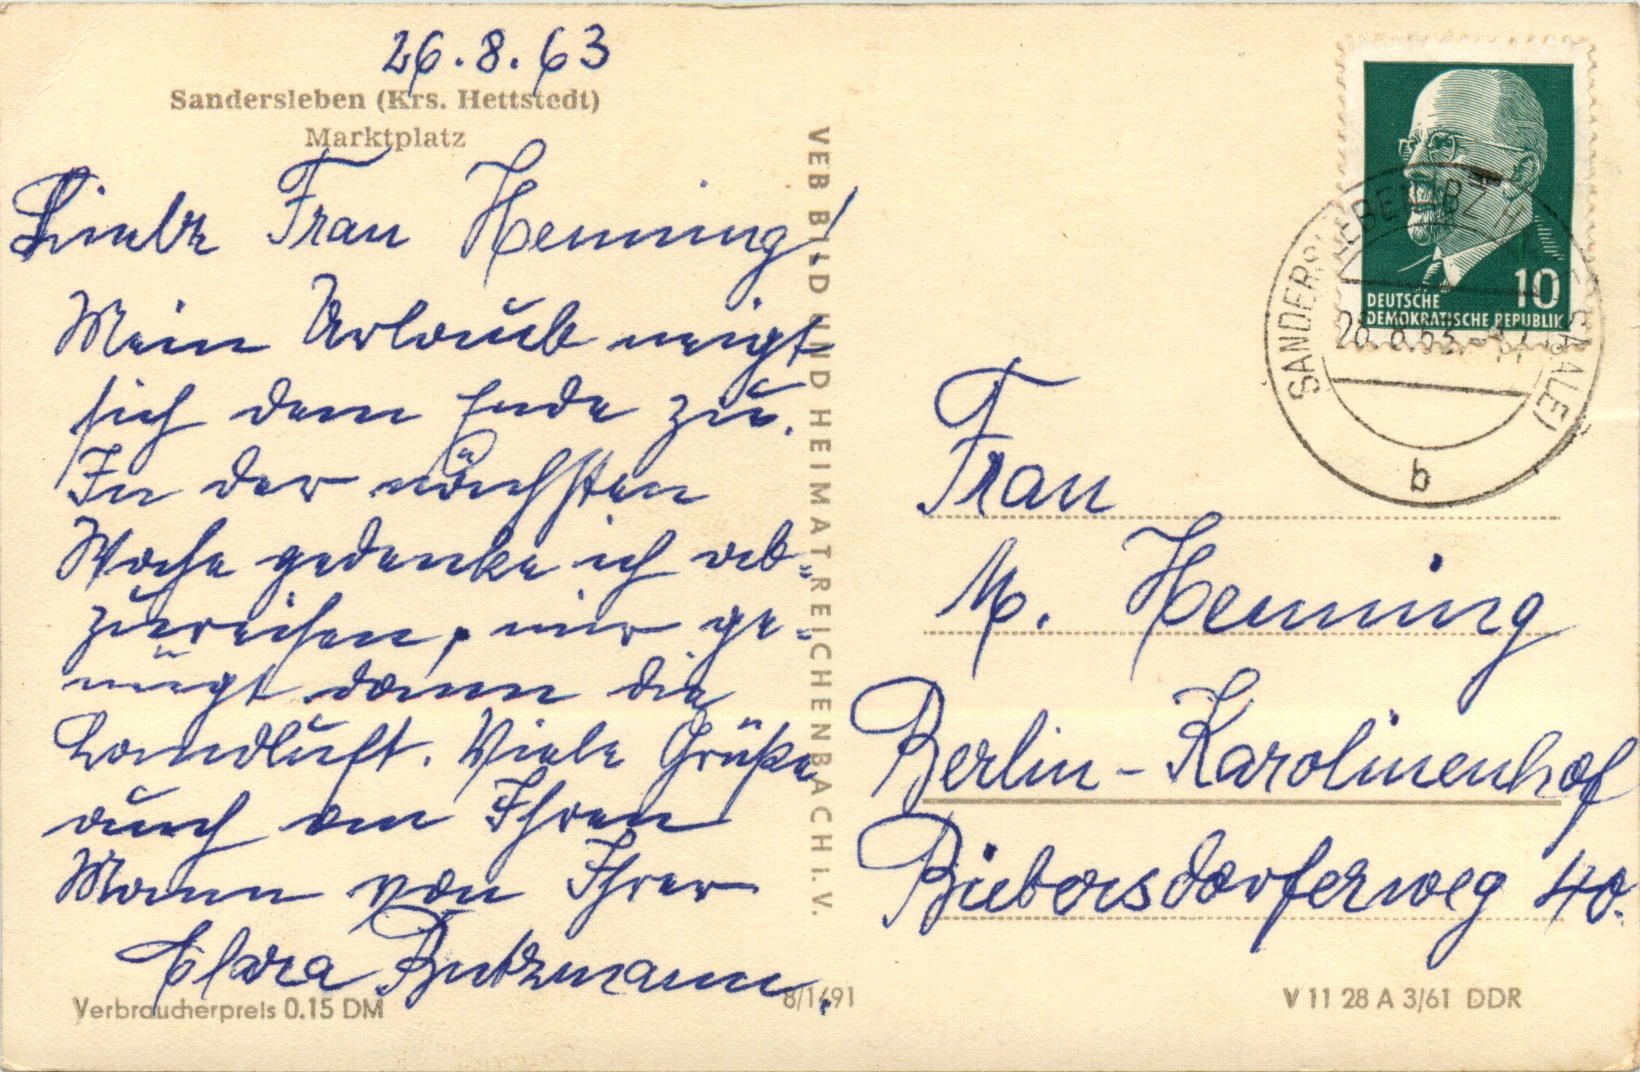 26.8.63
Sandersleben (Krs. Hettstedt)
Marktplatz
Liebe Frau Henning!
Mein Urlaub neigt
sich dem Ende zu.
In der nächsten
Woche gedenke ich ab-
zureisen, mir ge-
nügt dann die
Landluft. Viele Grüße
auch an Ihren
Mann von Ihrer
Clara Butzmann.
Verbraucherpreis 0.15 DM
8/1491
VEB BILD UND HEIMAT REICHENBACH I. V.
10
DEUTSCHE
DEMOKRATISCHE REPUBLIK
26.8.63
b
Frau
M. Henning
Berlin-Karolinenhof
Biebersdorferweg 40.
V 11 28 A 3/61 DDR